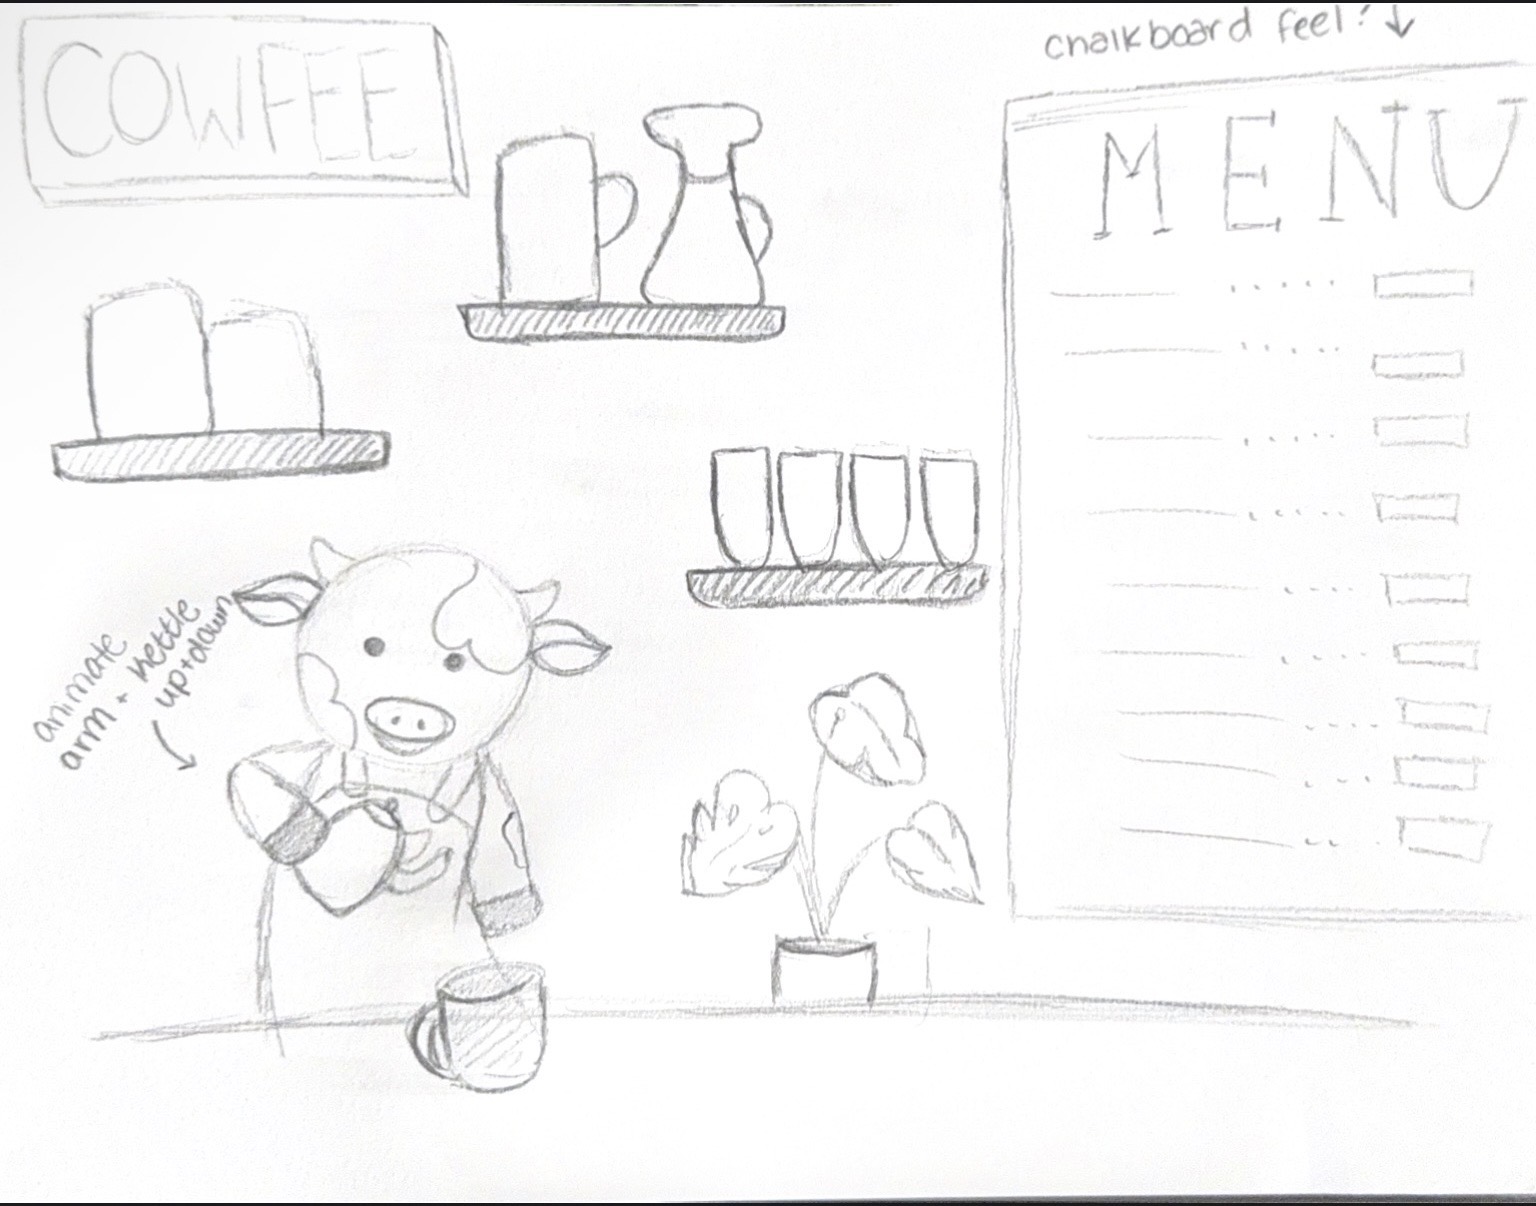 COWFEE
chalkboard feel! ↓
MENU
animate
arm + kettle
up+down